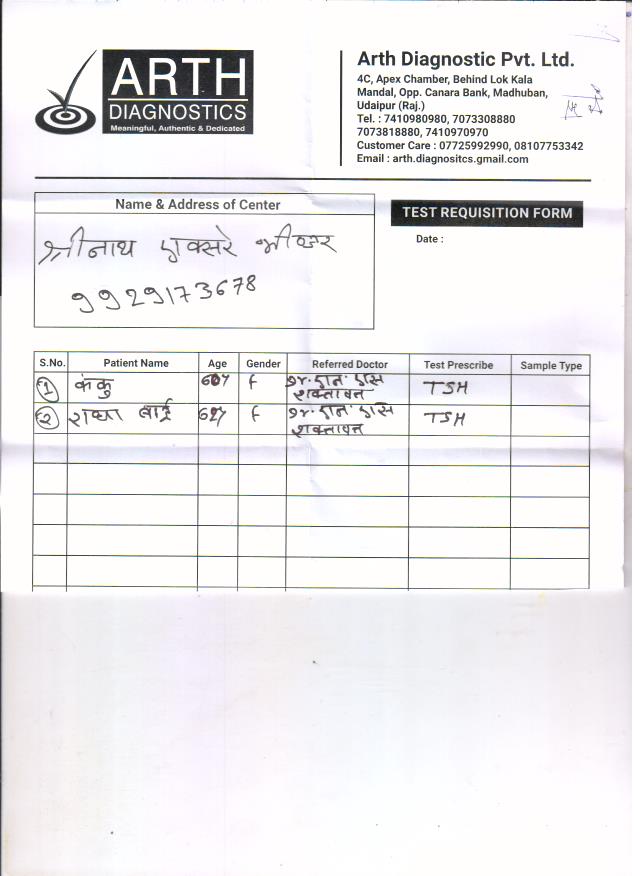 ARTH
DIAGNOSTICS
Meaningful, Authentic & Dedicated
Arth Diagnostic Pvt. Ltd.
4C, Apex Chamber, Behind Lok Kala
Mandal, Opp. Canara Bank, Madhuban,
Udaipur (Raj.)
Tel. : 7410980980, 7073308880
7073818880, 7410970970
Customer Care : 07725992990, 08107753342
Email : arth.diagnositcs.gmail.com
Name & Address of Center
श्रीनाथ एक्सरे भीण्डर
9929173678
TEST REQUISITION FORM
Date :
S.No. Patient Name Age Gender Referred Doctor Test Prescribe Sample Type
1 कंकु 60y F TSH
शक्तावत
2 बाई F TSH
शक्तावत